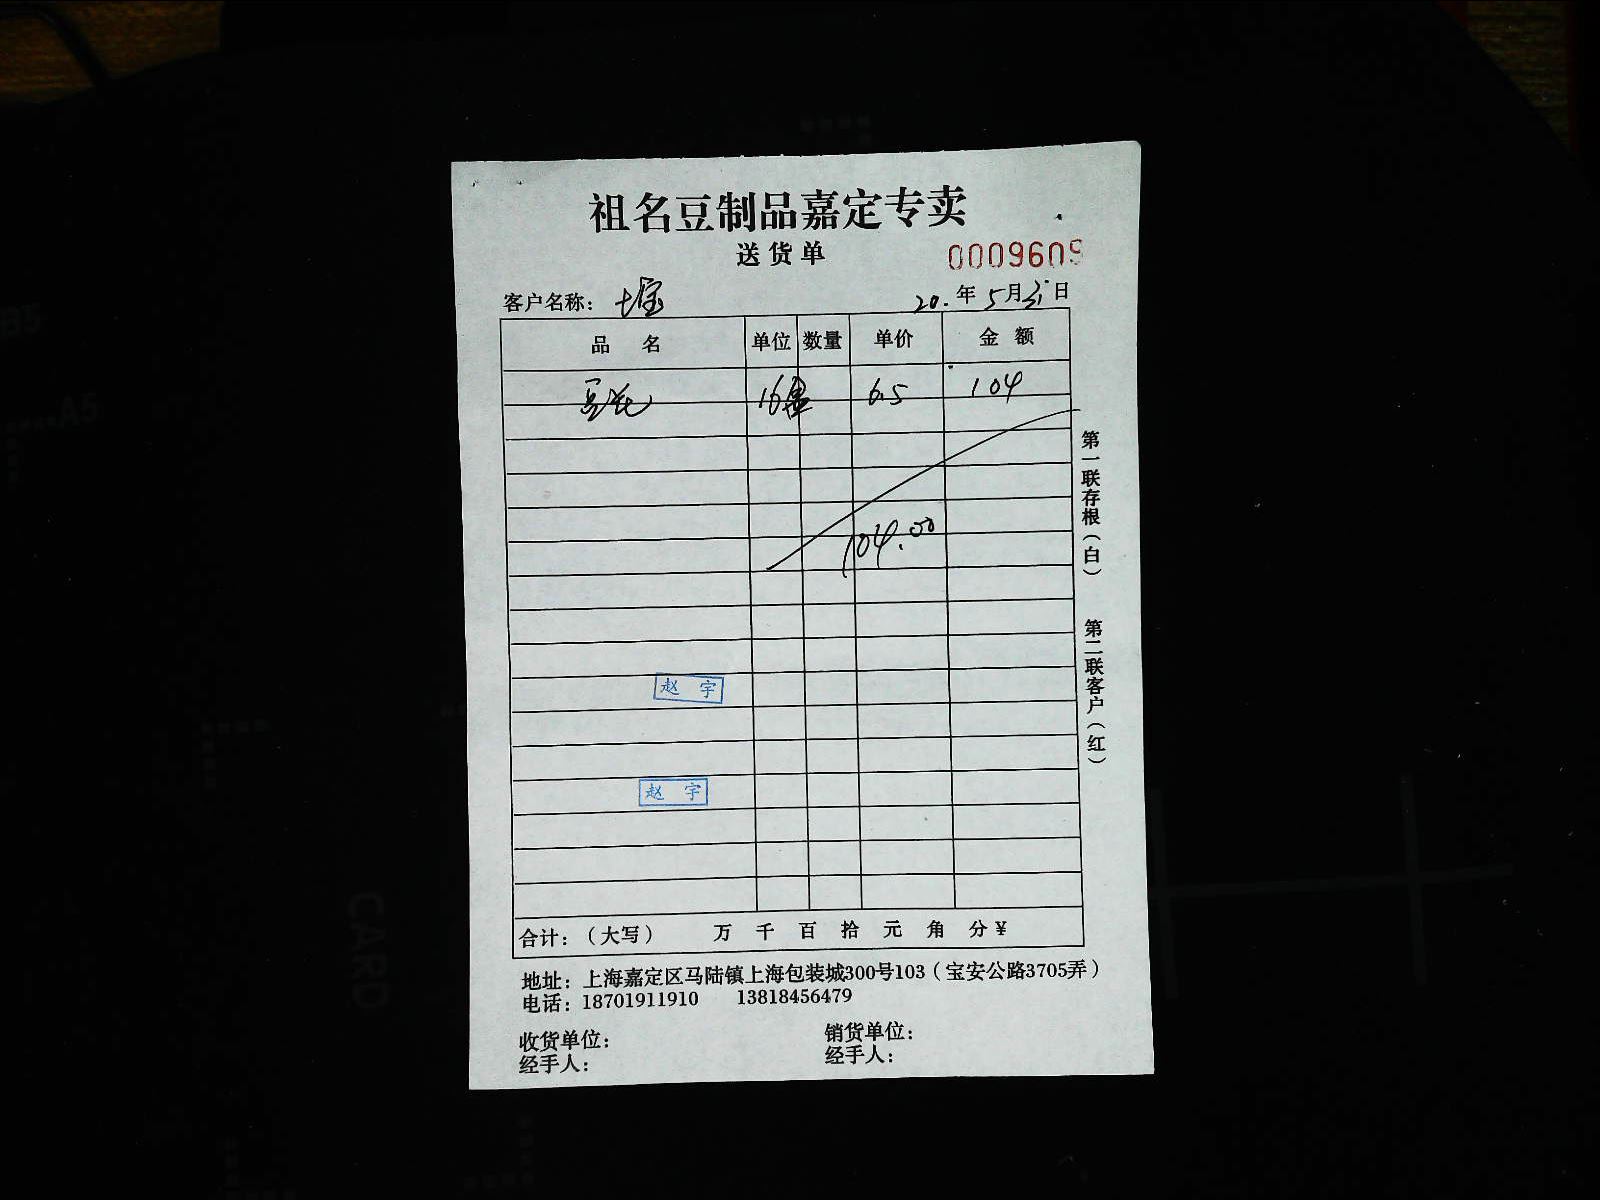 祖名豆制品嘉定专卖
送货单
0009609
客户名称：
20.年5月31日
品名 单位 数量 单价 金额
豆花 16盒 6.5 104
104.00
赵宇
赵宇
合计：（大写） 万 千 百 拾 元 角 分 ¥
地址：上海嘉定区马陆镇上海包装城300号103（宝安公路3705弄）
电话：18701911910 13818456479
收货单位： 销货单位：
经手人： 经手人：
第一联存根（白） 第二联客户（红）
B5
A5
CARD